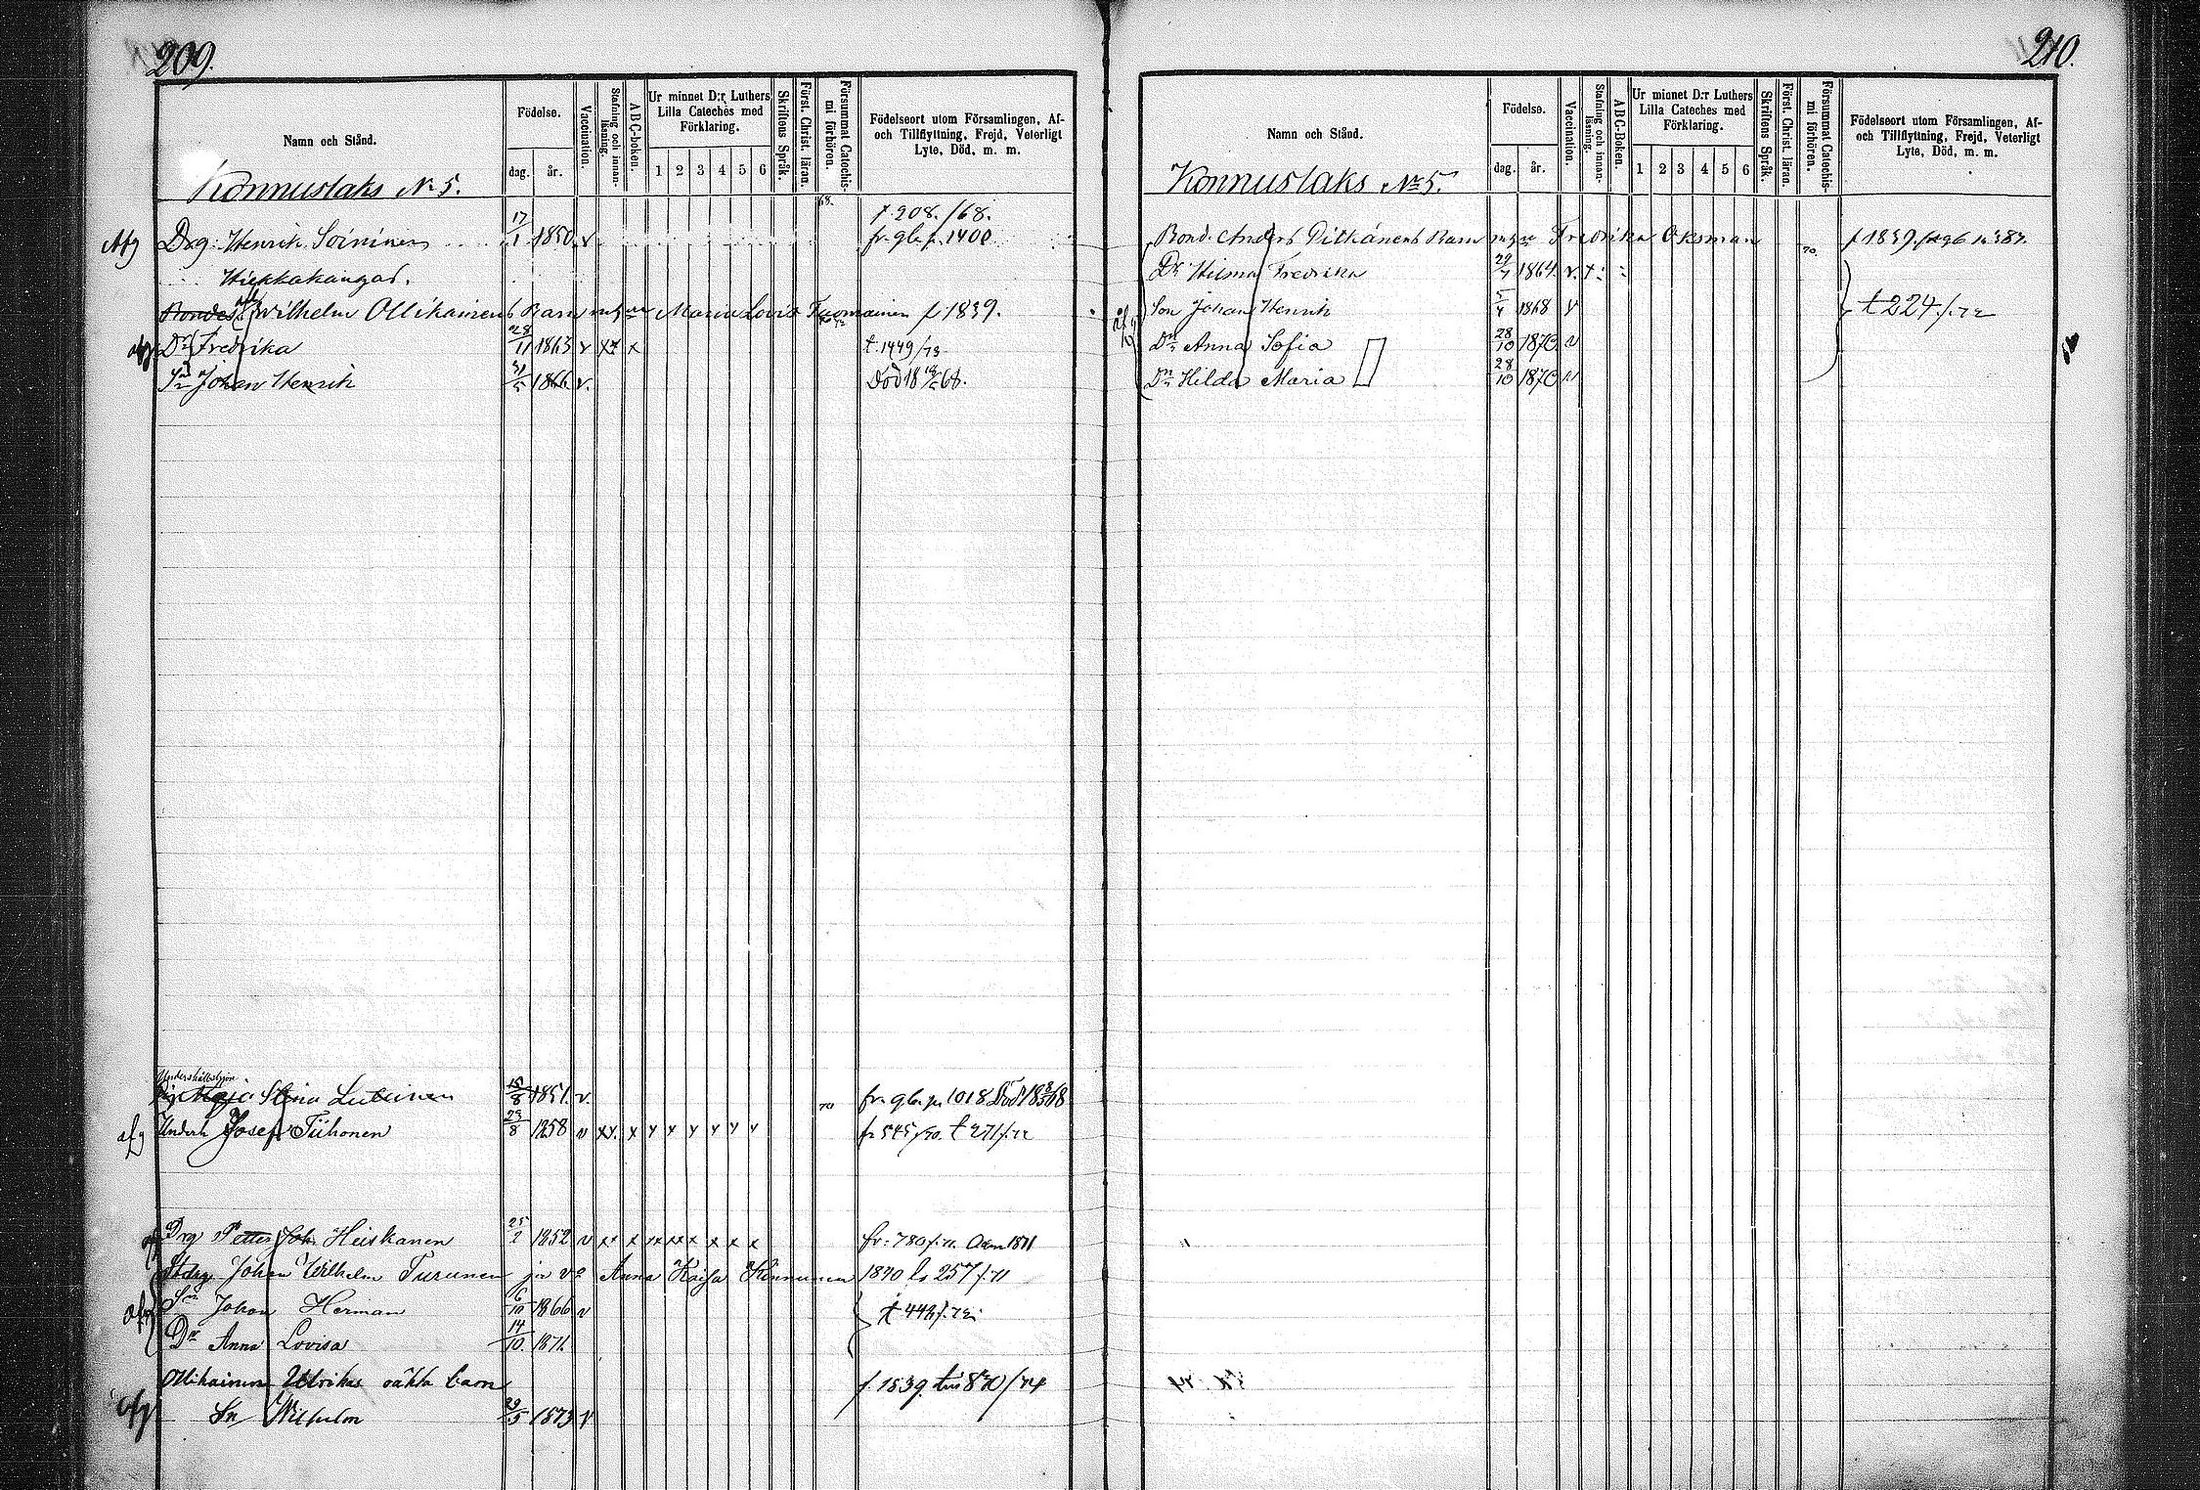 209.
Namn och Stånd.
Födelse.
dag. år.
Vaccination.
Stafning och innan-läsning.
ABC-boken.
Ur minnet D:r Luthers Lilla Cateches med Förklaring.
1 2 3 4 5 6
Skriftens Språk.
Först. Christ. läran.
Försummat Catechis-mi förhören.
Födelseort utom Församlingen, Af- och Tillflyttning, Frejd, Veterligt Lyte, Död, m. m.
Konnuslaks No 5.
68. f. 208./68.
Afg Drg. Henrik Soininen 17/1 1850. v. fr. gb. p. 1400
Hiekkakangas.
Bondes Wilhelm Ollikainens Barn m. h. Maria Lovisa f. 1839.
afg Dr Fredrika 28/11 1863 v xx x t. 1449/73
Sn Johan Henrik 1866 v. Död 18 68.
Underhållshjon
Maja Stina Luttinen 15/8 1851. v. 70 fr. gb. p. 1018 Död 18 68
afg Underh Josef Tiihonen 23/8 1858 v xx. x y y y y y y fr 545/70. t 271/72
Drg Petter Joh. Heiskanen 25/2 1852 v xx x xx xx x x x x fr. 780/71. 1871
Johan Wilhelm Turunen Anna Kaisa Kinnunen 1840 257/71
afg Sn Johan Herman 16/10 1866 v t 448/72
Dr Anna Lovisa 14/10. 1871.
Ollikainen Ulrikas oäkta barn f. 1839. 870/74
afg Sn Wilhelm 29/5 1873 v
210.
Namn och Stånd.
Födelse.
dag. år.
Vaccination.
Stafning och innan-läsning.
ABC-Boken.
Ur minnet D:r Luthers Lilla Cateches med Förklaring.
1 2 3 4 5 6
Skriftens Språk.
Först. Christ. läran.
Försummat Catechis-mi förhören.
Födelseort utom Församlingen, Af- och Tillflyttning, Frejd, Veterligt Lyte, Död, m. m.
Konnuslaks No 5.
Bond. Anders Pitkänens Barn m. h. Fredrika Oksman 70. f 1839.
Dr Hilma Fredrika 1864. v. +
Son Johan Henrik 5/4 1868 v t 224./72
afg Dr Anna Sofia 28/10 1870. v
Dr Hilda Maria 28/10 1870 v